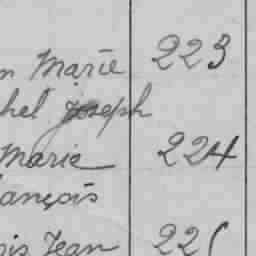 n Marie 223
hel Joseph
Marie 224
ançois
ois Jean 225